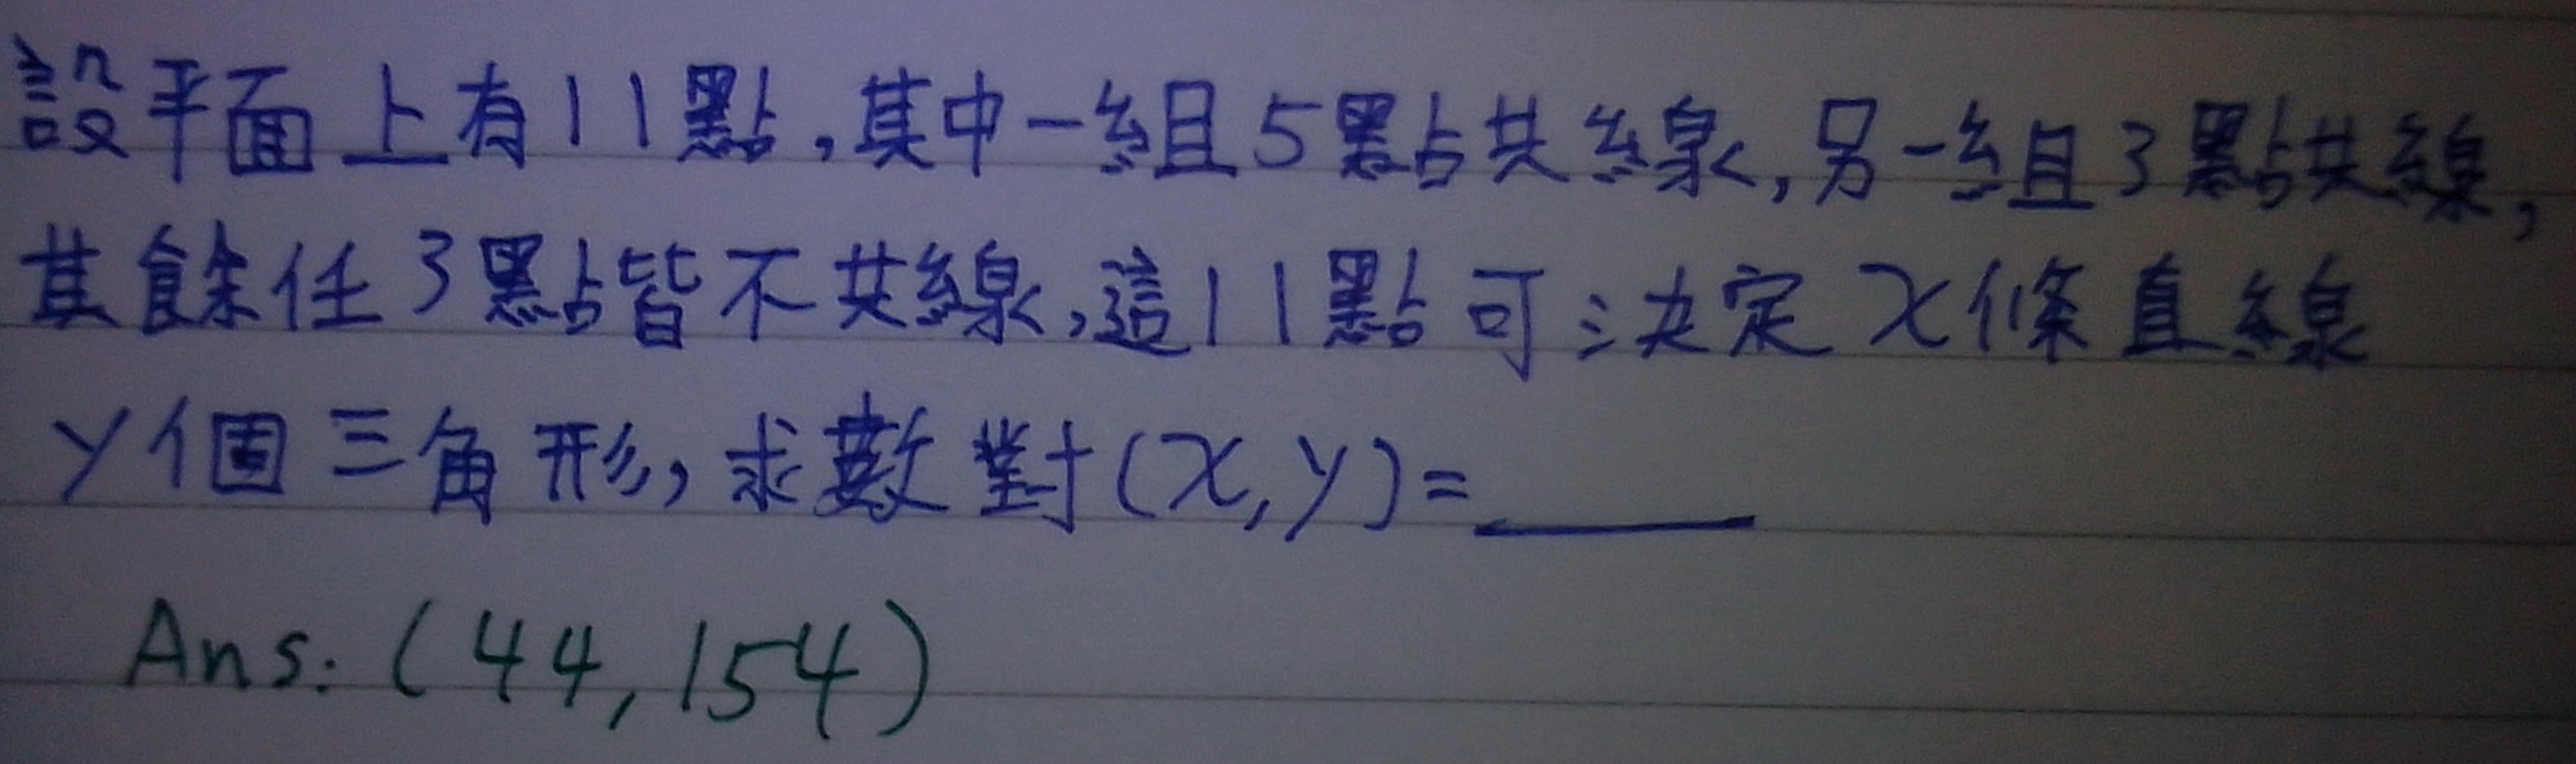 設平面上有11點,其中一組5點共線,另一組3點共線,
其餘任3點皆不共線,這11點可決定x條直線
y個三角形,求數對(x,y)=____
Ans:(44,154)